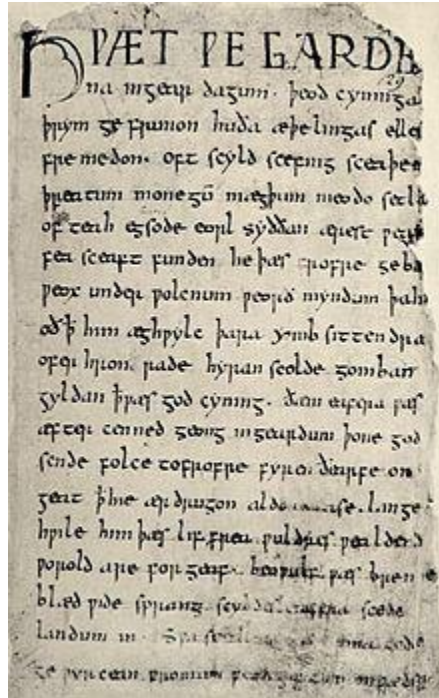 HǷÆT ǷE GARDE
29
na ingear dagum. þeod cyninga
þrym ge frunon huða æþelingas elle
fre medon. oft scyld scefing sceaþe
þreatum monegū mægþum meodo setla
of teah egsode eorl syððan ærest ƿear
fea sceaft funden he þæs frofre geba
ƿeox under ƿolcnum ƿeorð myndum þah
oð ꝥ him æghƿylc þara ymb sittendra
ofer hron rade hyran scolde gomban
gyldan ꝥ ƿæs god cyning. ðæm eafera ƿæs
æfter cenned geong in geardum þone god
sende folce tofrofre fyren ðearfe on
geat ꝥ hie ær drugon aldor ase. lange
hƿile him þæs lif frea ƿuldres ƿealdend
ƿorold are for geaf. beoƿulf ƿæs breme
blæd ƿide sprang scyldes eafera scede
landum in. Sƿa guma gode
ge ƿyrcean fromum feoh giftum